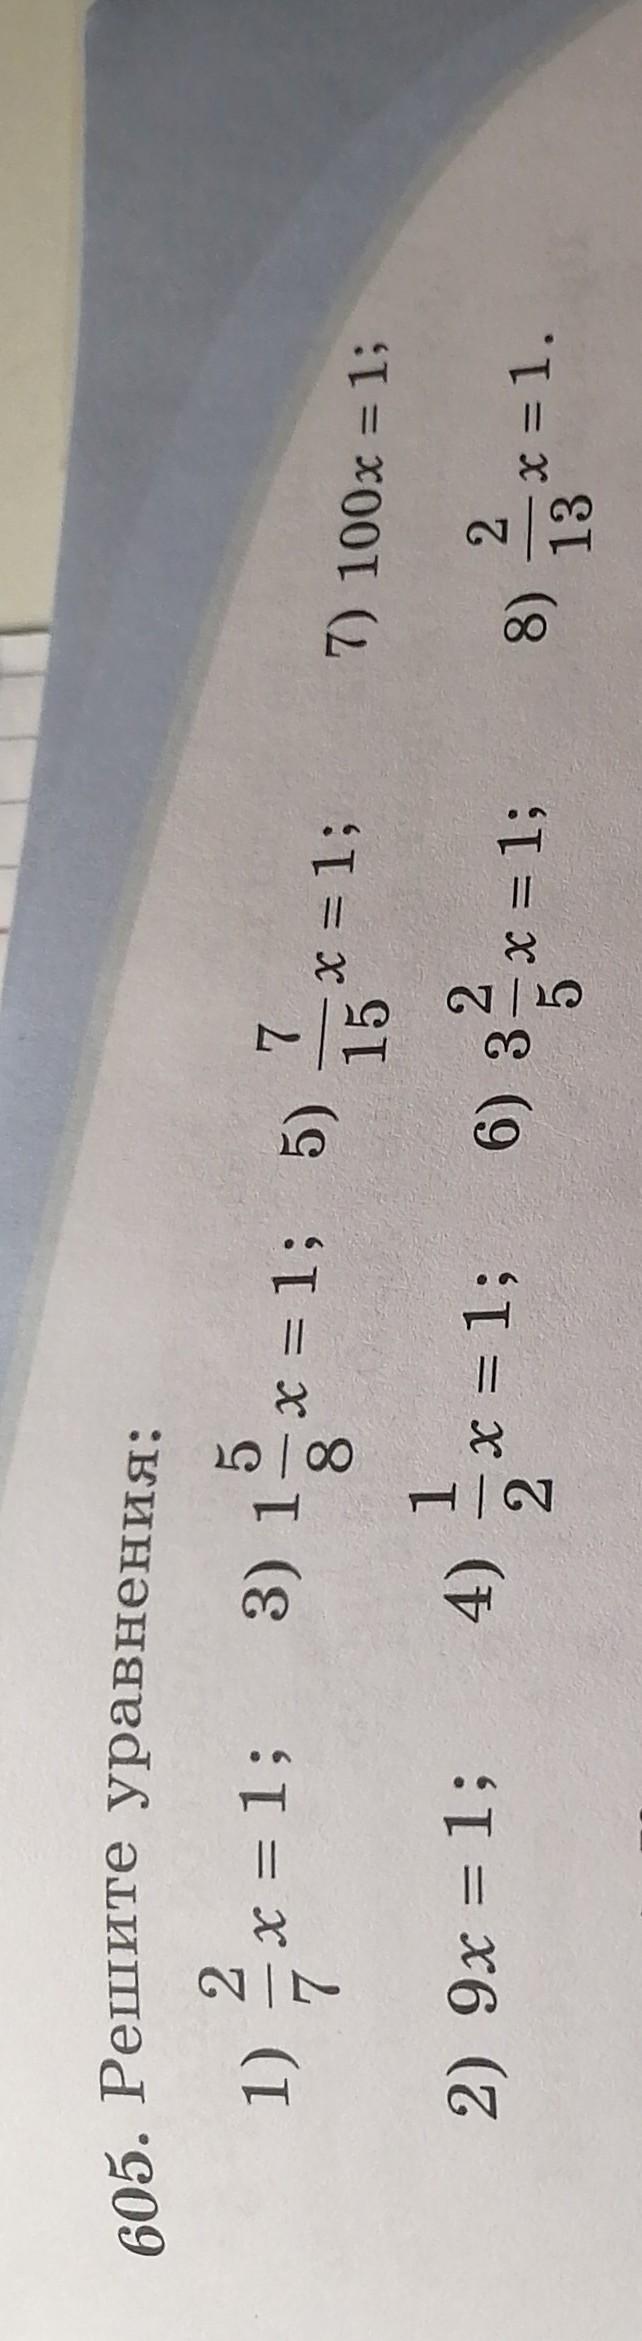 605. Решите уравнения:
1) 2/7 x = 1; 3) 1 5/8 x = 1; 5) 7/15 x = 1; 7) 100x = 1;
2) 9x = 1; 4) 1/2 x = 1; 6) 3 2/5 x = 1; 8) 2/13 x = 1.